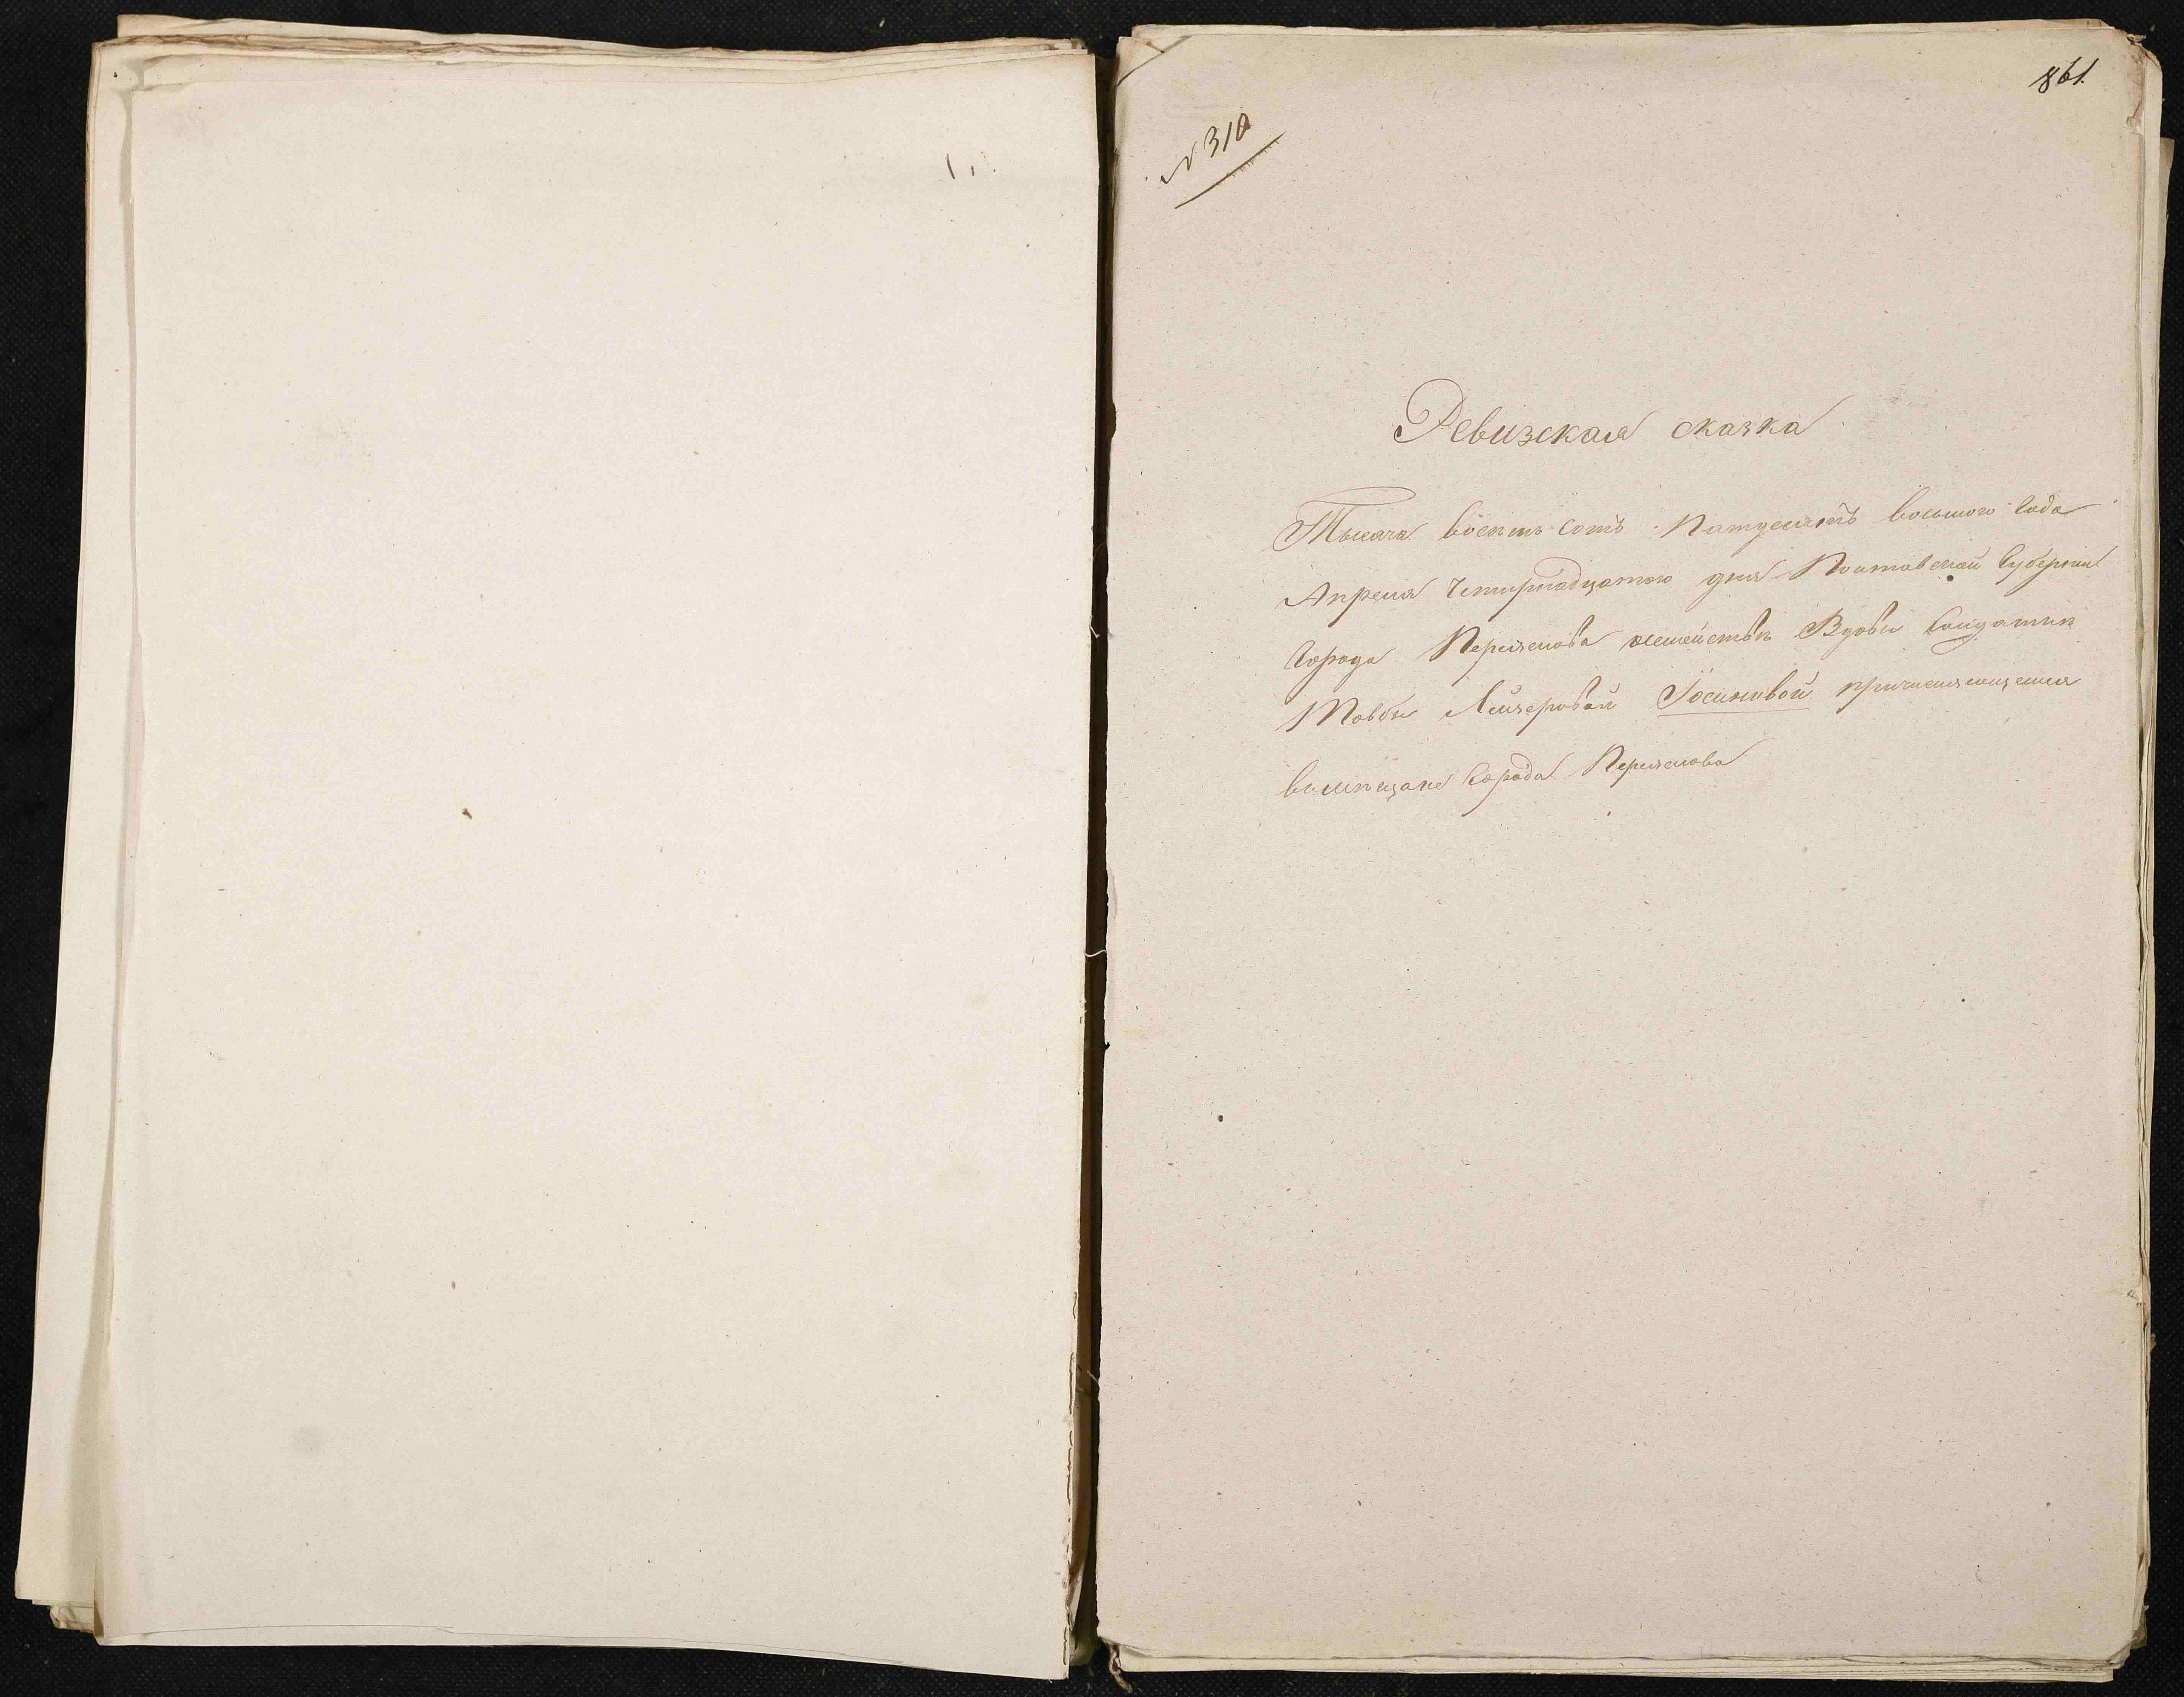 861.
№ 310
Ревизская сказка
Тысяча восемь сотъ Пятдесятъ восьмого Года
Апреля Четырнадцатого дня Полтавской Губернии
Города Переяслова семействѣ Вдовы Солдатки
Товбы Лейзеровой Іосиновой причисляющейся
вьмѣщане Города Переяслова